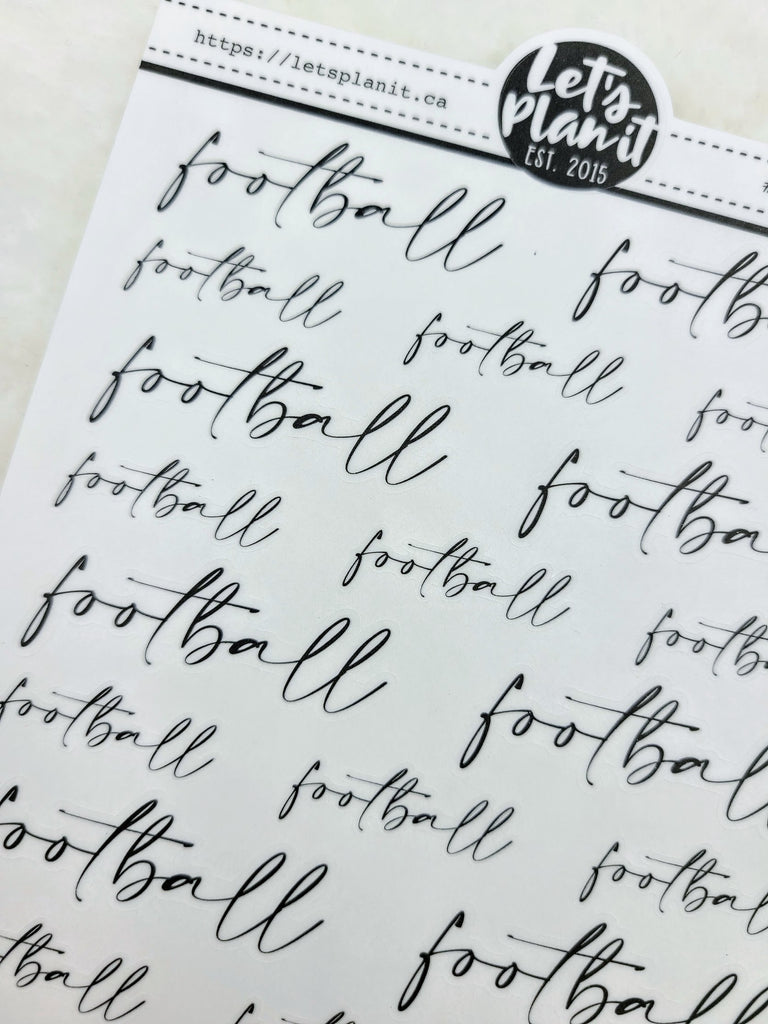 https://letsplanit.ca
Let's
plan it
EST. 2015
#
football footb
football football foot
football footba
football football footba
football footbal
football football footbal
football football
tball